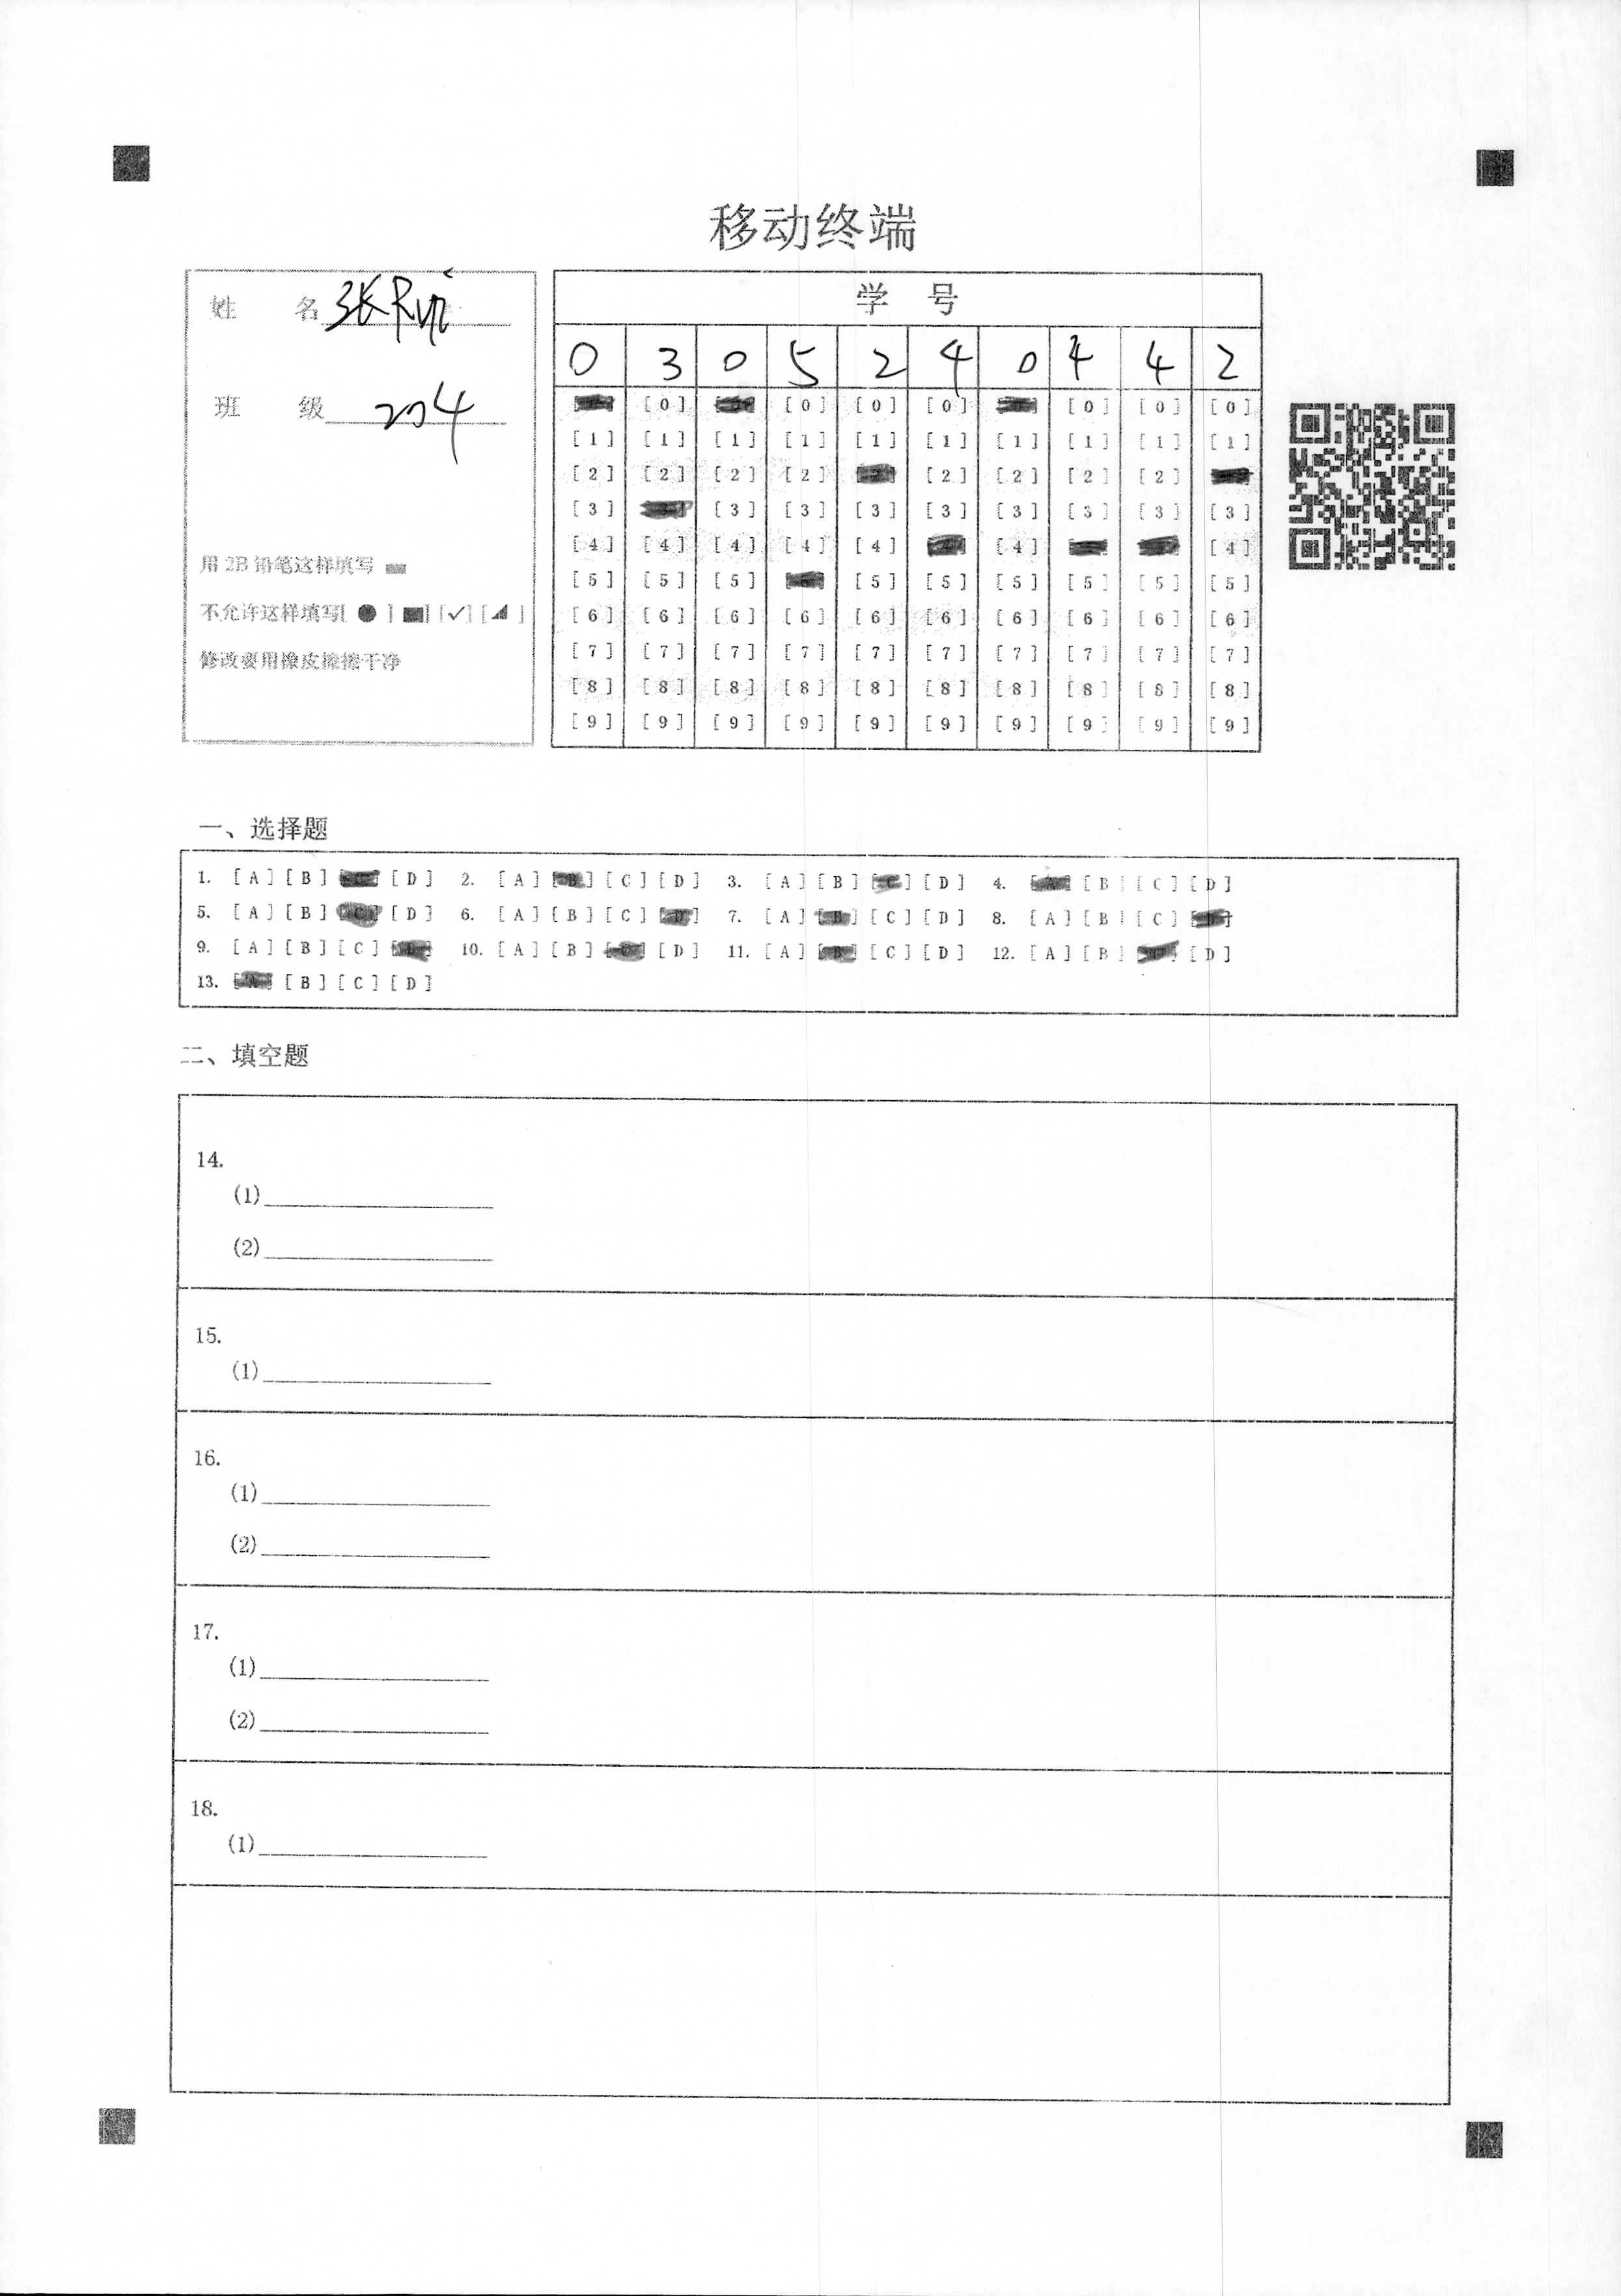 移动终端
姓 名 张
班 级 204
用 2B 铅笔这样填写
不允许这样填写[ ● ] [■] [✓] [◢ ]
修改要用橡皮擦擦干净
学 号
0 3 0 5 2 4 0 4 4 2
[0] [0] [0] [0] [0] [0]
[1] [1] [1] [1] [1] [1] [1] [1] [1] [1]
[2] [2] [2] [2] [2] [2] [2] [2]
[3] [3] [3] [3] [3] [3] [3] [3] [3]
[4] [4] [4] [4] [4] [4] [4]
[5] [5] [5] [5] [5] [5] [5] [5] [5]
[6] [6] [6] [6] [6] [6] [6] [6] [6] [6]
[7] [7] [7] [7] [7] [7] [7] [7] [7] [7]
[8] [8] [8] [8] [8] [8] [8] [8] [8] [8]
[9] [9] [9] [9] [9] [9] [9] [9] [9] [9]
一、选择题
1. [A] [B] [D] 2. [A] [B] [C] [D] 3. [A] [B] [C] [D] 4. [A] [B] [C] [D]
5. [A] [B] [C] [D] 6. [A] [B] [C] [D] 7. [A] [B] [C] [D] 8. [A] [B] [C] [D]
9. [A] [B] [C] 10. [A] [B] [D] 11. [A] [B] [C] [D] 12. [A] [B] [D]
13. [A] [B] [C] [D]
二、填空题
14.
(1)
(2)
15.
(1)
16.
(1)
(2)
17.
(1)
(2)
18.
(1)